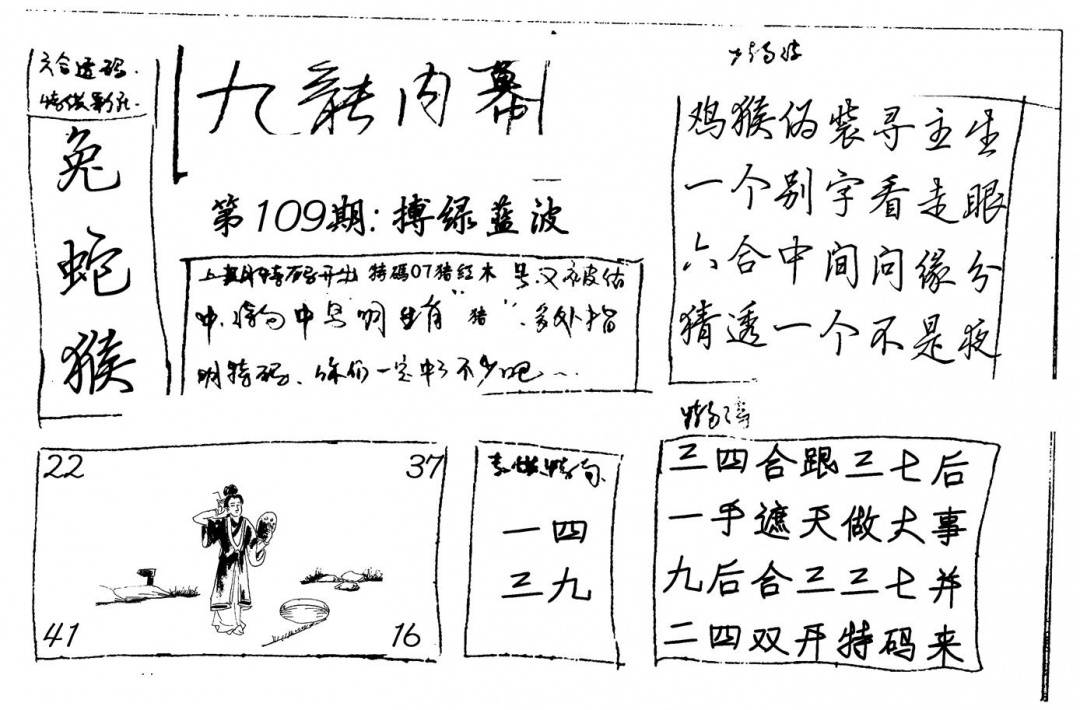 六合透码.
兔
蛇
猴
九龍内幕
第109期:搏绿蓝波
上期特码开出 特碼07猪红木
中, 中 明 生肖“猪”, 多处指
明特码, 你们一定中了不少吧~
鸡猴伪装寻主生
一个别字看走眼
六合中间问缘分
猜透一个不是夜
22
37
41
16
一四
三九
三四合跟三七后
一手遮天做大事
九后合三三七并
二四双开特码来